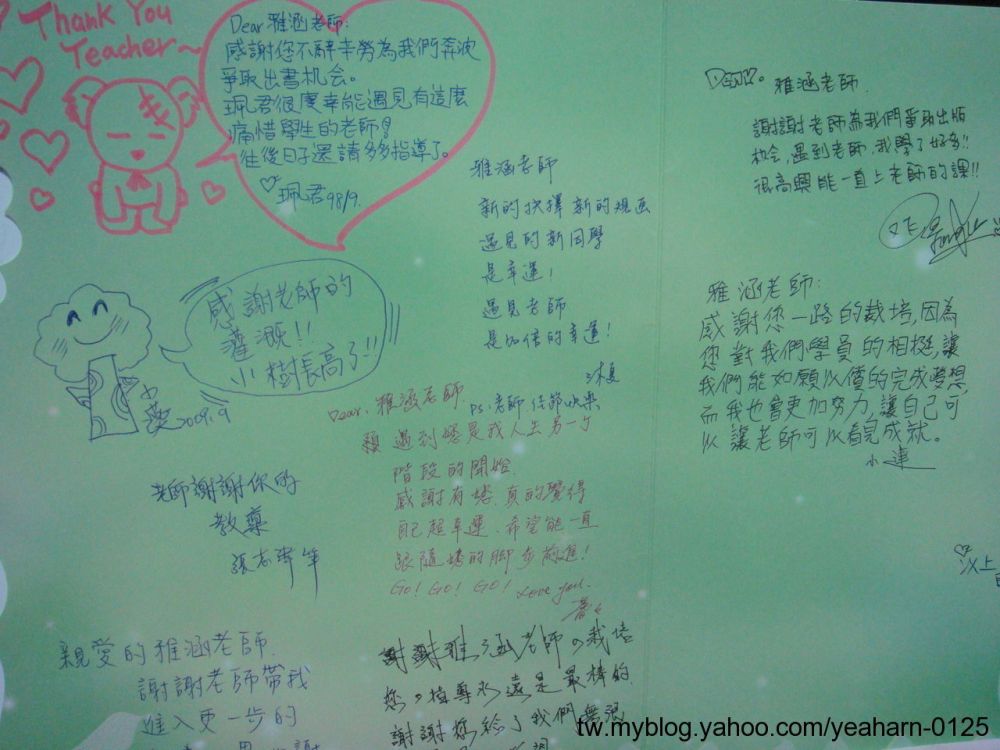 Thank You
Teacher~
Dear 雅涵老師:
感謝您不辭辛勞為我們奔波
爭取出書机会。
珮君很慶幸能遇見有這麼
痛惜學生的老師!
往後日子還請多多指導了。
珮君98/9.
Dear. 雅涵老師.
謝謝老師為我們爭取出版
机会,遇到老師,我學了好多!!
很高興能一直上老師的課!!
雅涵老師
新的抉擇 新的規画
遇見的新同學
是幸運!
遇見老師
是加倍的幸運!
PS:老師佳節快樂
感謝老師的
灌溉!!
小樹長高了!!
2009.9
雅涵老師:
感謝您一路的栽培,因為
您對我們學員的相挺,讓
我們能如願以償的完成夢想
而我也會更加努力,讓自己可
以讓老師可以看完成就。
小連
Dear. 雅涵老師.
遇到您是我人生另一个
階段的開始.
感謝有您.真的覺得
自己超幸運、希望能一直
跟隨您的脚步前進!
GO! GO! GO! Love you.
老師謝謝你的
教導
親愛的雅涵老師.
謝謝老師帶我
進入更一步的
謝謝雅涵老師の栽培
您の指導永遠是最棒的
謝謝您給了我們無限
tw.myblog.yahoo.com/yeaharn-0125